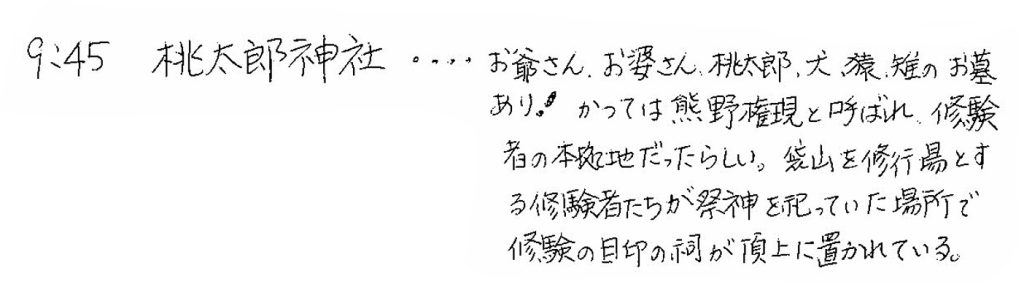 9:45 桃太郎神社 ‥‥ お爺さん、お婆さん、桃太郎、犬、猿、雉のお墓
あり。かつては熊野権現と呼ばれ、修験
者の本拠地だったらしい。袋山を修行場とす
る修験者たちが祭神を祀っていた場所で
修験の目印の祠が頂上に置かれている。